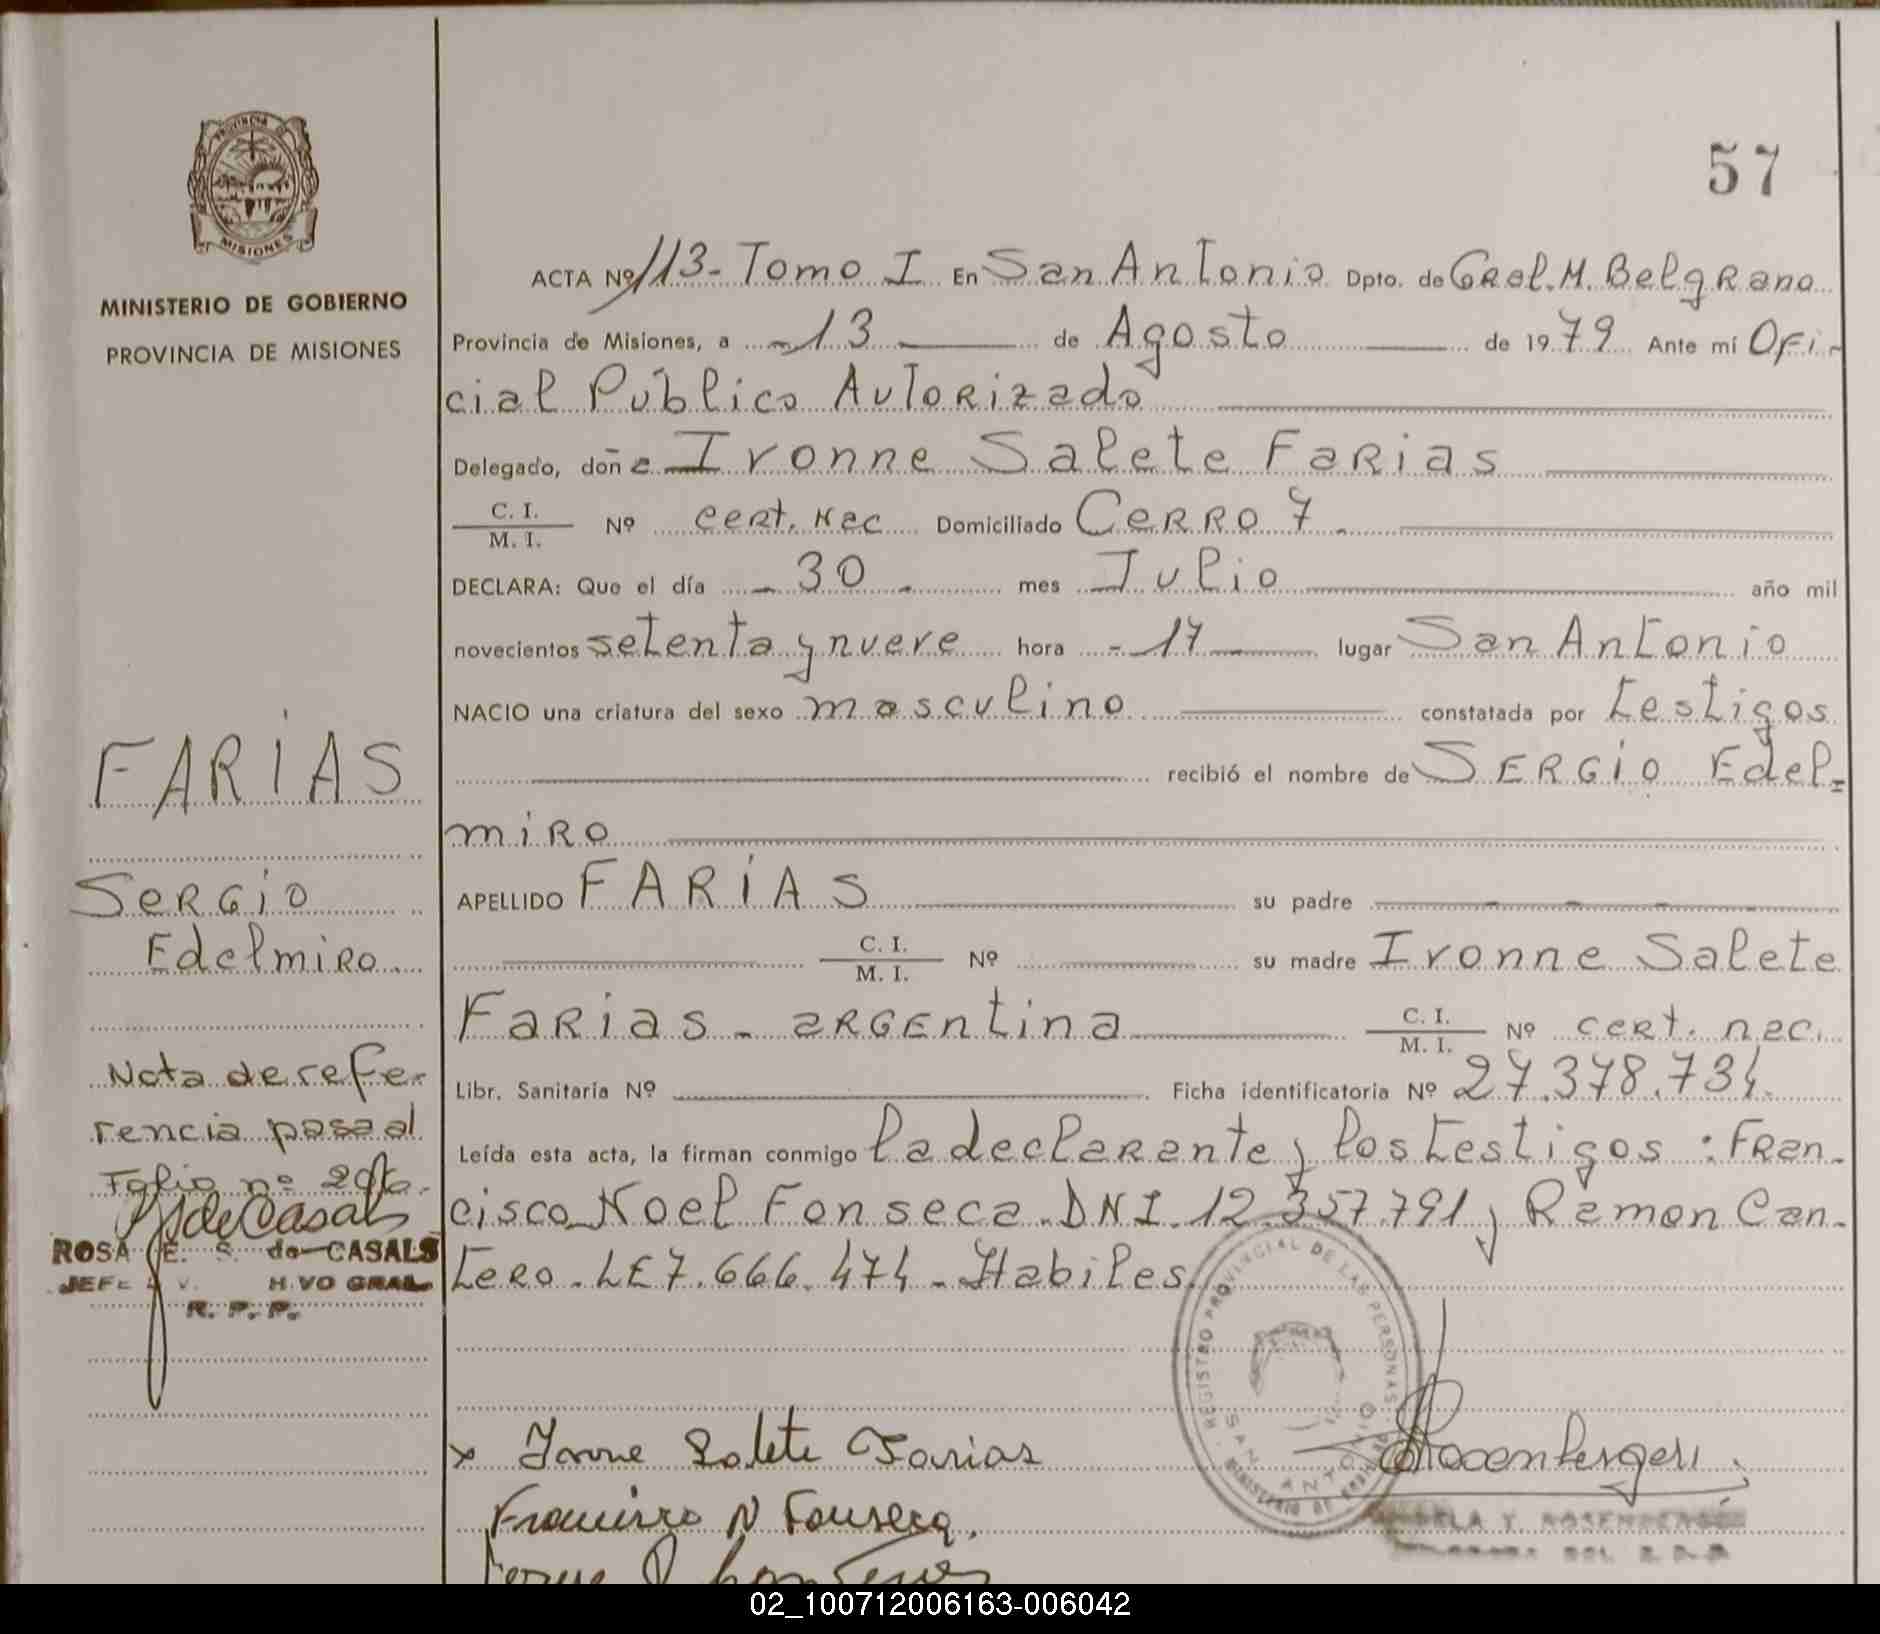 PROVINCIA DE
MISIONES
MINISTERIO DE GOBIERNO
PROVINCIA DE MISIONES
FARIAS
Sergio
Edelmiro
Nota de refe-
rencia pasa al
Folio nº 206.
ROSA E. S. de CASALS
JEFE V. H.VO GRAL
R. P. P.
57
ACTA Nº 113 - Tomo I En San Antonio Dpto. de Gral. M. Belgrano
Provincia de Misiones, a - 13 de Agosto de 1979 Ante mí Ofi-
cial Público Autorizado
Delegado, doña Ivonne Salete Farias
C. I.
M. I. Nº cert. nac Domiciliado Cerro 7.
DECLARA: Que el día - 30 - mes Julio año mil
novecientos setenta y nueve hora - 17 lugar San Antonio
NACIO una criatura del sexo masculino constatada por testigos
recibió el nombre de SERGIO Edel=
miro
APELLIDO FARIAS su padre
C. I.
M. I. Nº su madre Ivonne Salete
Farias - argentina C. I.
M. I. Nº cert. nac.
Libr. Sanitaria Nº Ficha identificatoria Nº 27.378.734.
Leída esta acta, la firman conmigo la declarante y los testigos: Fran-
cisco Noel Fonseca. DNI. 12.357.791 y Ramon Can-
tero. LE 7.666.474 - Habiles.
REGISTRO PROVINCIAL DE LAS PERSONAS
SAN ANTONIO
MINISTERIO DE GOBIERNO
x Ivonne Salete Farias
Rosenberger
Francisco N Fonseca.
02_100712006163-006042